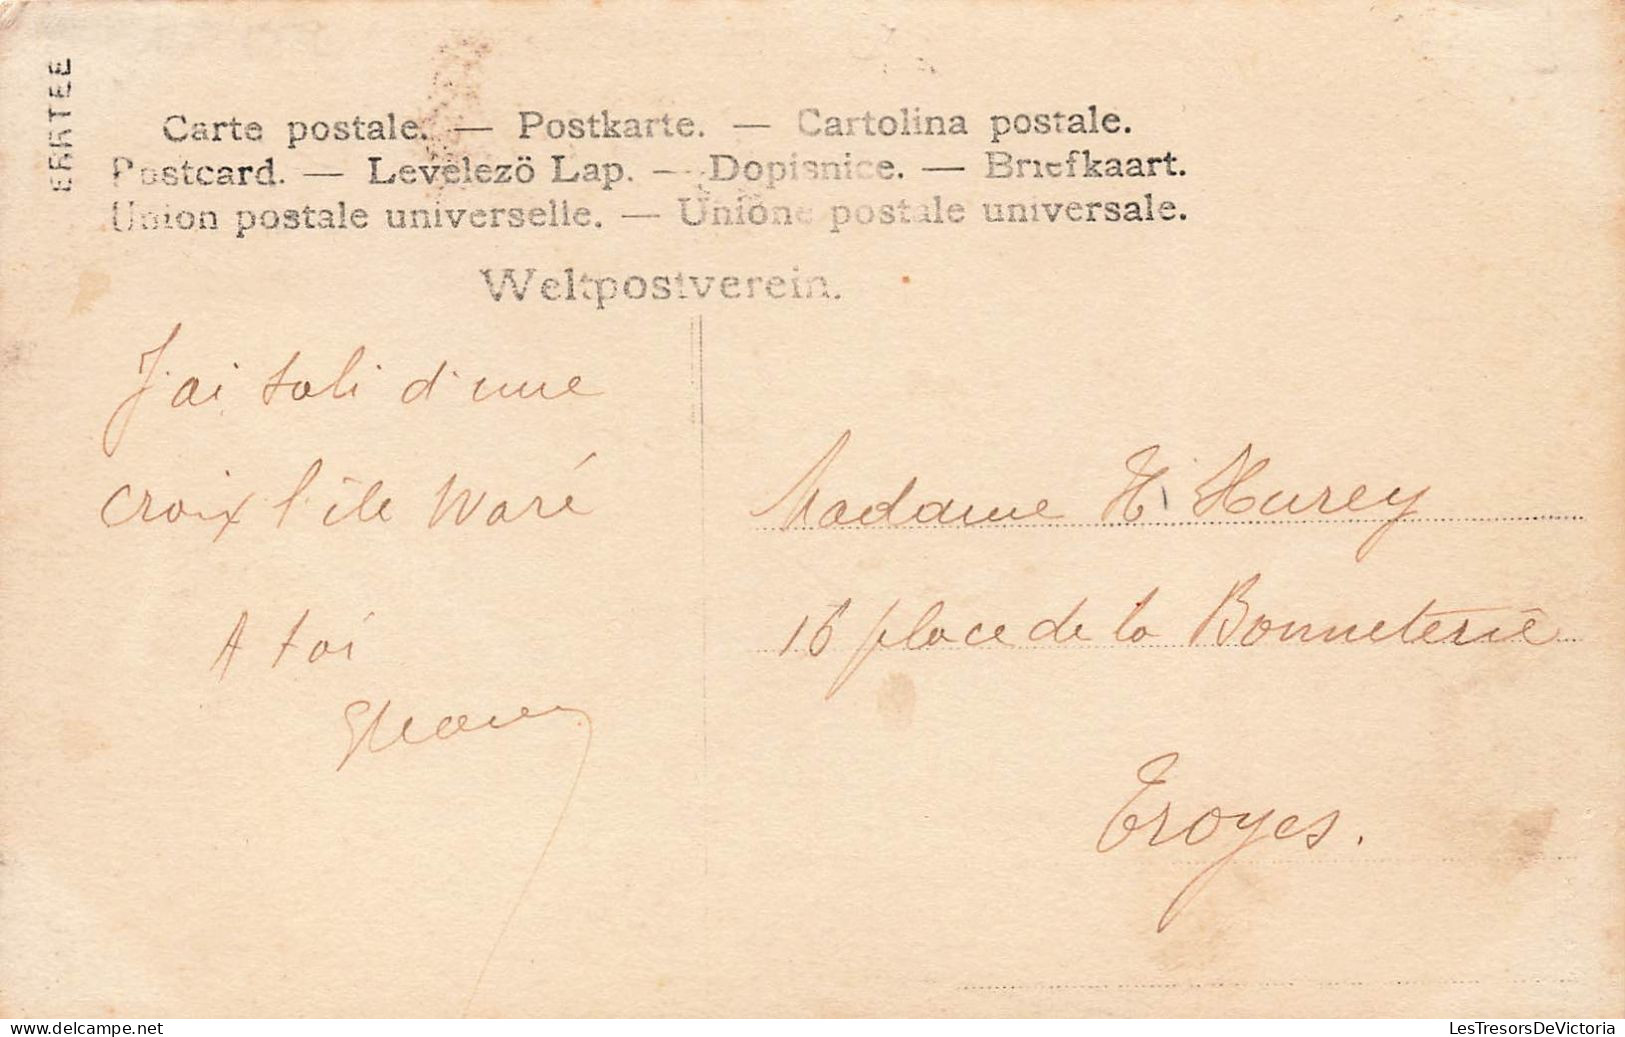 Carte postale. — Postkarte. — Cartolina postale.
Postcard. — Levelezö Lap. — Dopisnice. — Briefkaart.
Union postale universelle. — Unione postale universale.
Weltpostverein.
J'ai sali d'une
croix l'île
A toi
Madame H. Hurey
16 place de la Bonneterie
Troyes.
LesTresorsDeVictoria